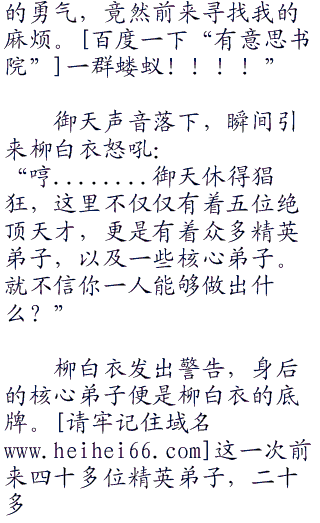 的勇气，竟然前来寻找我的
麻烦。[百度一下“有意思书
院”]一群蝼蚁！！！！”
御天声音落下，瞬间引
来柳白衣怒吼：
“哼........御天休得猖
狂，这里不仅仅有着五位绝
顶天才，更是有着众多精英
弟子，以及一些核心弟子。
就不信你一人能够做出什
么？”
柳白衣发出警告，身后
的核心弟子便是柳白衣的底
牌。[请牢记住域名
www.heihei66.com]这一次前
来四十多位精英弟子，二十
多